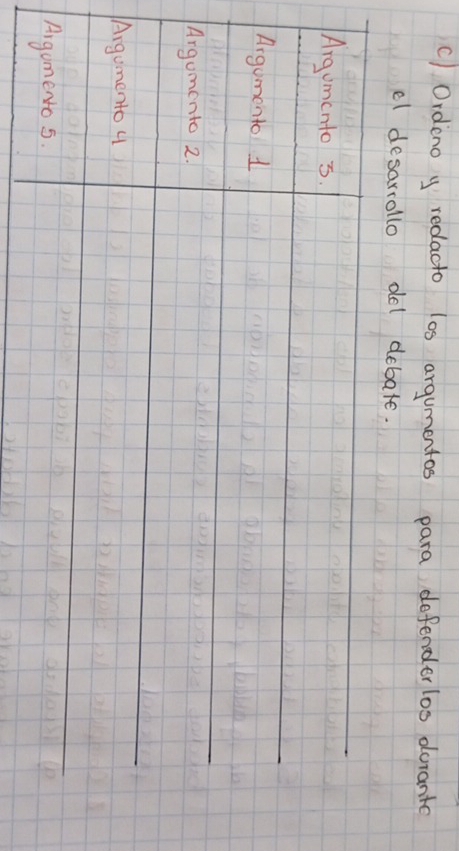 c) Ordeno y redacto los argumentos para defenderlos durante
el desarrollo del debate.
Argumento 3.
Argumento 1
Argumento 2.
Argumento 4
Argumento 5.